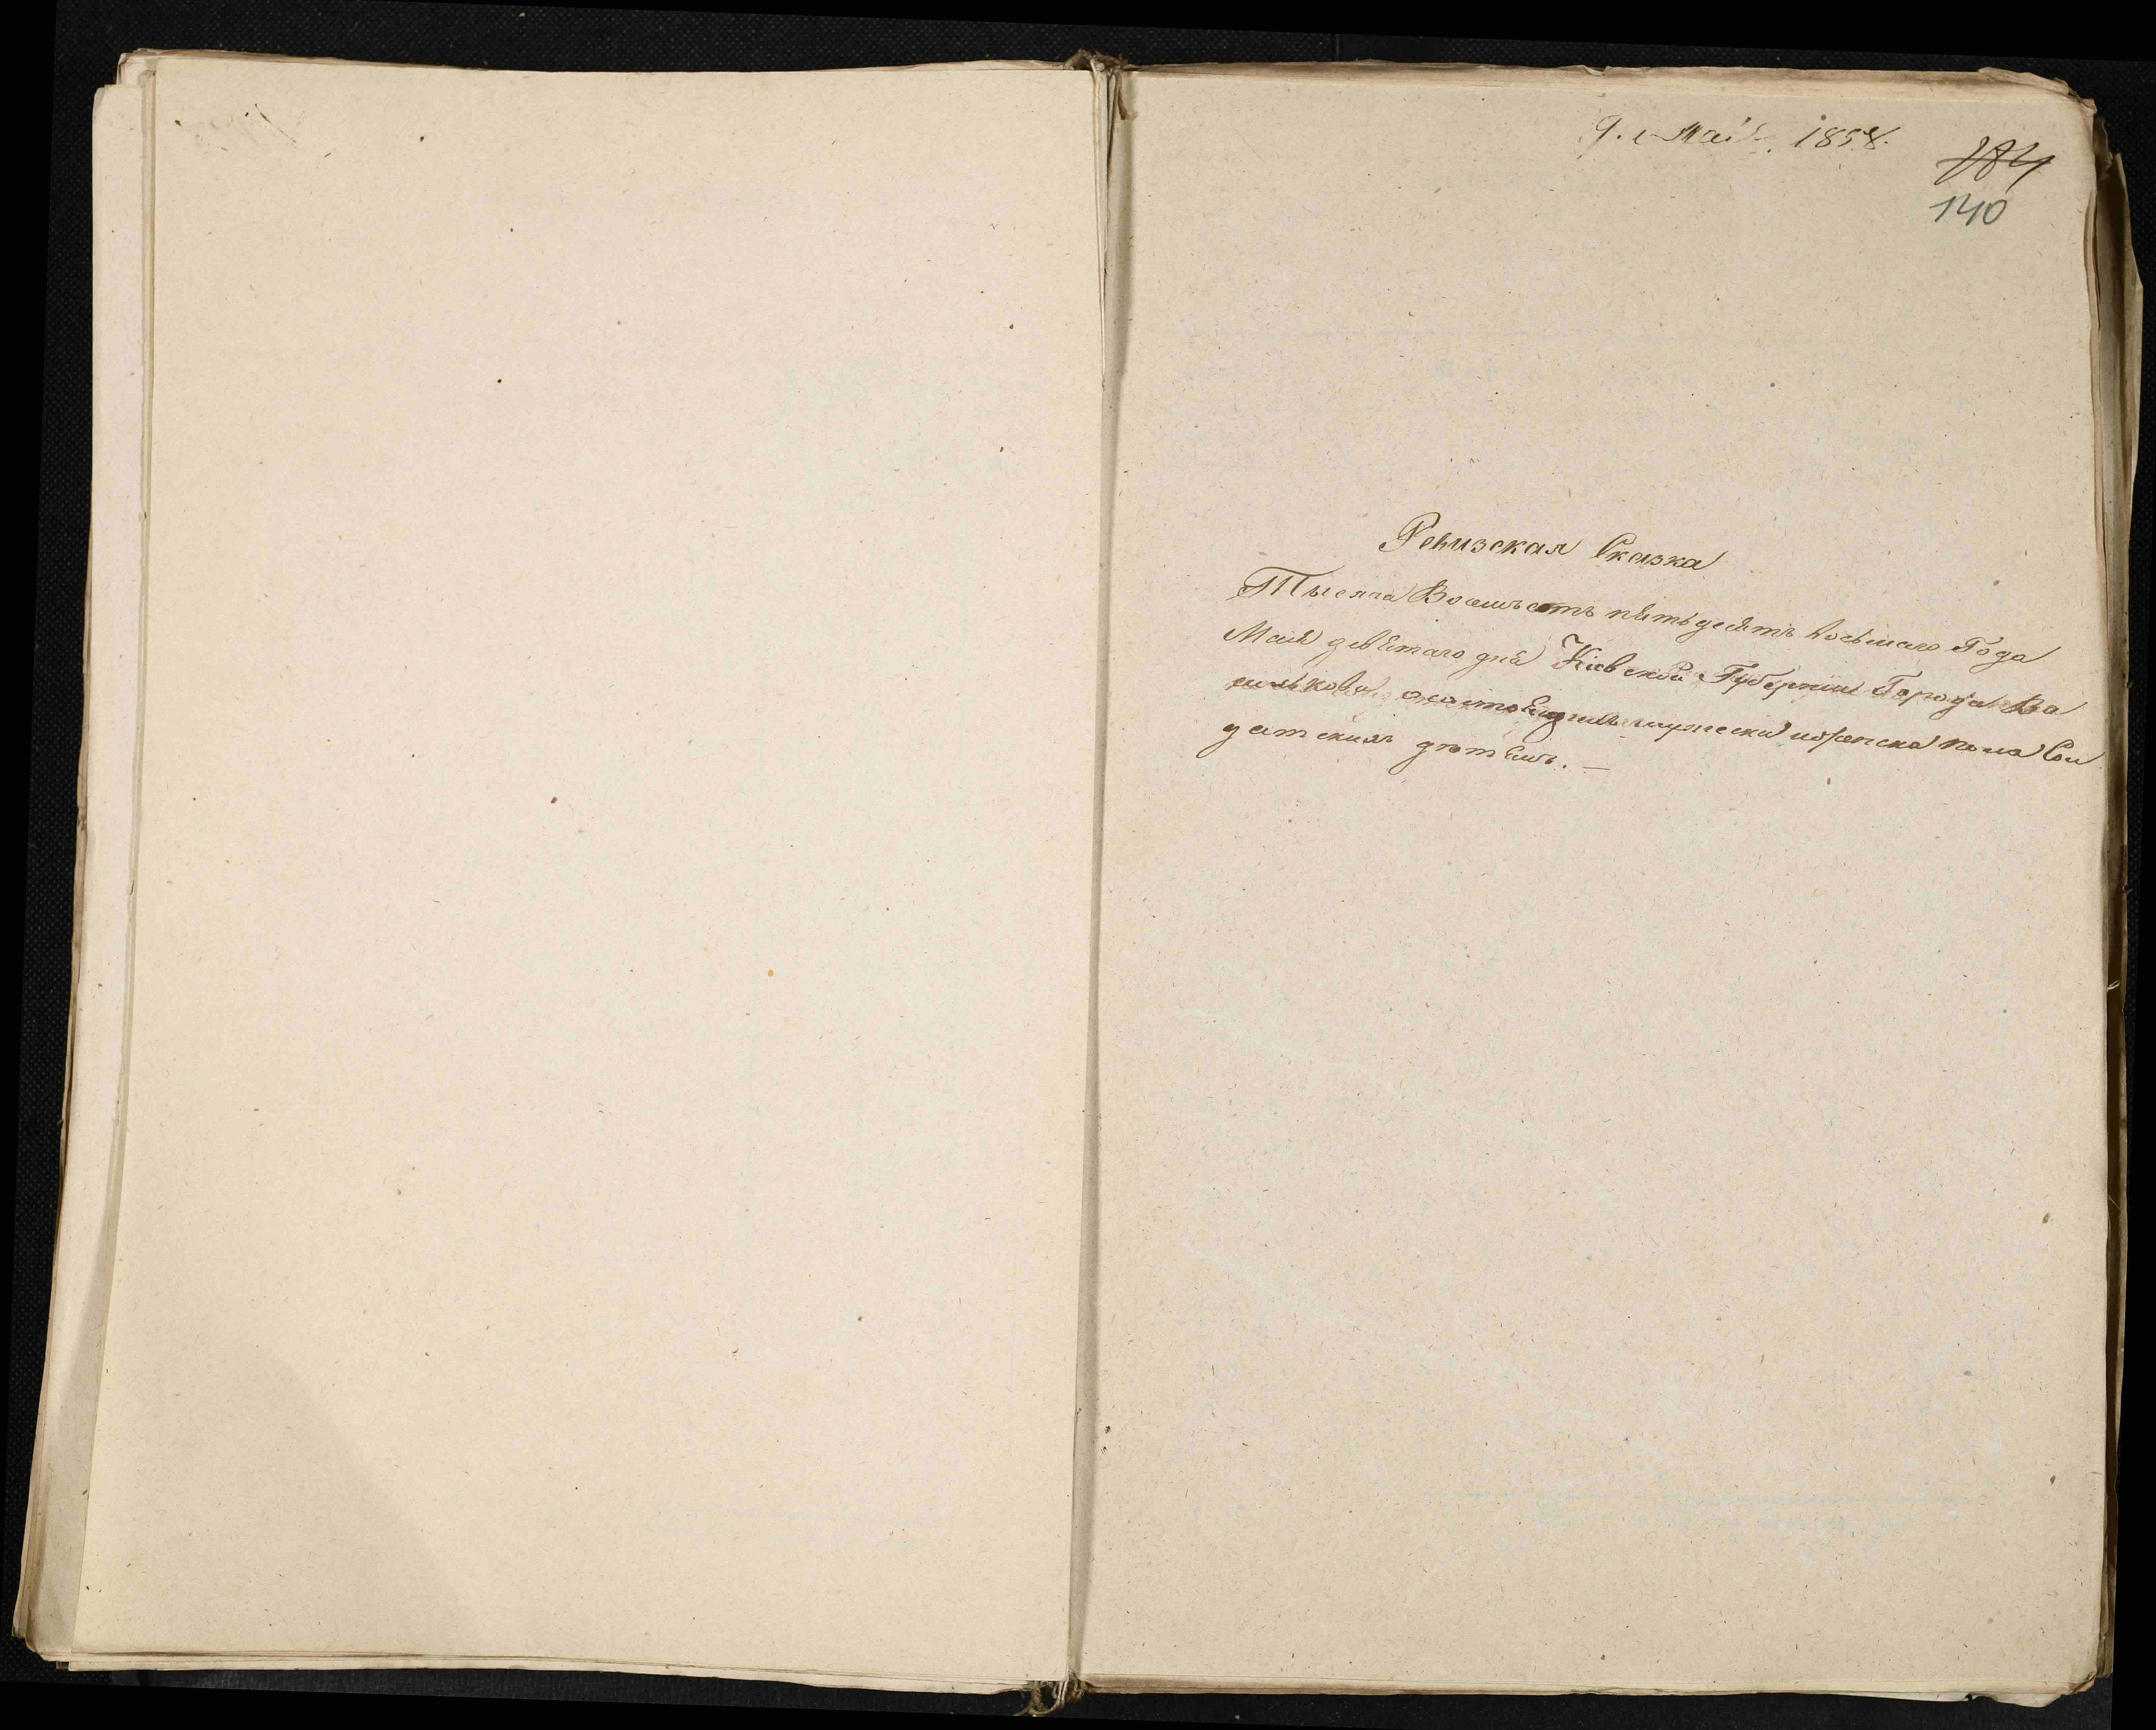 9. Маія. 1858.
184
140
Ревизская Сказка
Тысяча Восимсотъ пятьдесятъ восьмаго Года
Маія девятаго дня Кіевской Губерніи Города Ва
силькова о состоящихъ мужеска и женска пола Сол
датскихъ дѣтяхъ. —